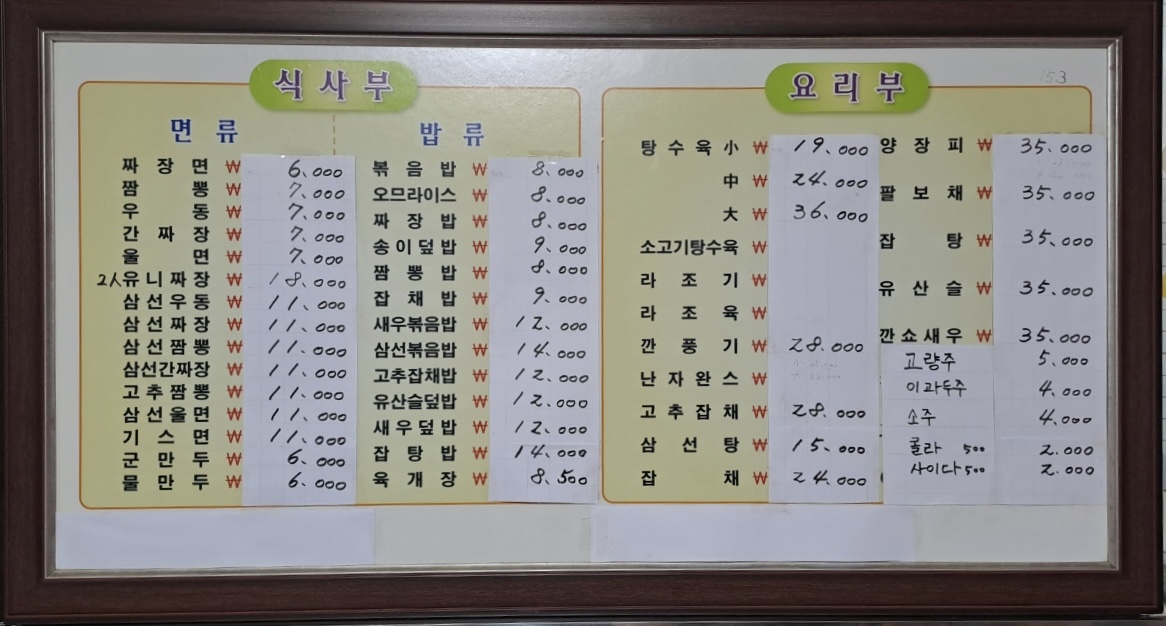 식사부
면류
짜장면 ₩ 6.000
짬뽕 ₩ 7.000
우동 ₩ 7.000
간짜장 ₩ 7.000
울면 ₩ 7.000
2人유니짜장 ₩ 18.000
삼선우동 ₩ 11.000
삼선짜장 ₩ 11.000
삼선짬뽕 ₩ 11.000
삼선간짜장 ₩ 11.000
고추짬뽕 ₩ 11.000
삼선울면 ₩ 11.000
기스면 ₩ 11.000
군만두 ₩ 6.000
물만두 ₩ 6.000
밥류
볶음밥 ₩ 8.000
오므라이스 ₩ 8.000
짜장밥 ₩ 8.000
송이덮밥 ₩ 9.000
짬뽕밥 ₩ 8.000
잡채밥 ₩ 9.000
새우볶음밥 ₩ 12.000
삼선볶음밥 ₩ 14.000
고추잡채밥 ₩ 12.000
유산슬덮밥 ₩ 12.000
새우덮밥 ₩ 12.000
잡탕밥 ₩ 14.000
육개장 ₩ 8.500
요리부
탕수육小 ₩ 19.000
中 ₩ 24.000
大 ₩ 36.000
소고기탕수육 ₩
라조기 ₩
라조육 ₩
깐풍기 ₩ 28.000
난자완스 ₩
고추잡채 ₩ 28.000
삼선탕 ₩ 15.000
잡채 ₩ 24.000
양장피 ₩ 35.000
팔보채 ₩ 35.000
잡탕 ₩ 35.000
유산슬 ₩ 35.000
깐쇼새우 ₩ 35.000
고량주 5.000
이과두주 4.000
소주 4.000
콜라 500 2.000
사이다 500 2.000